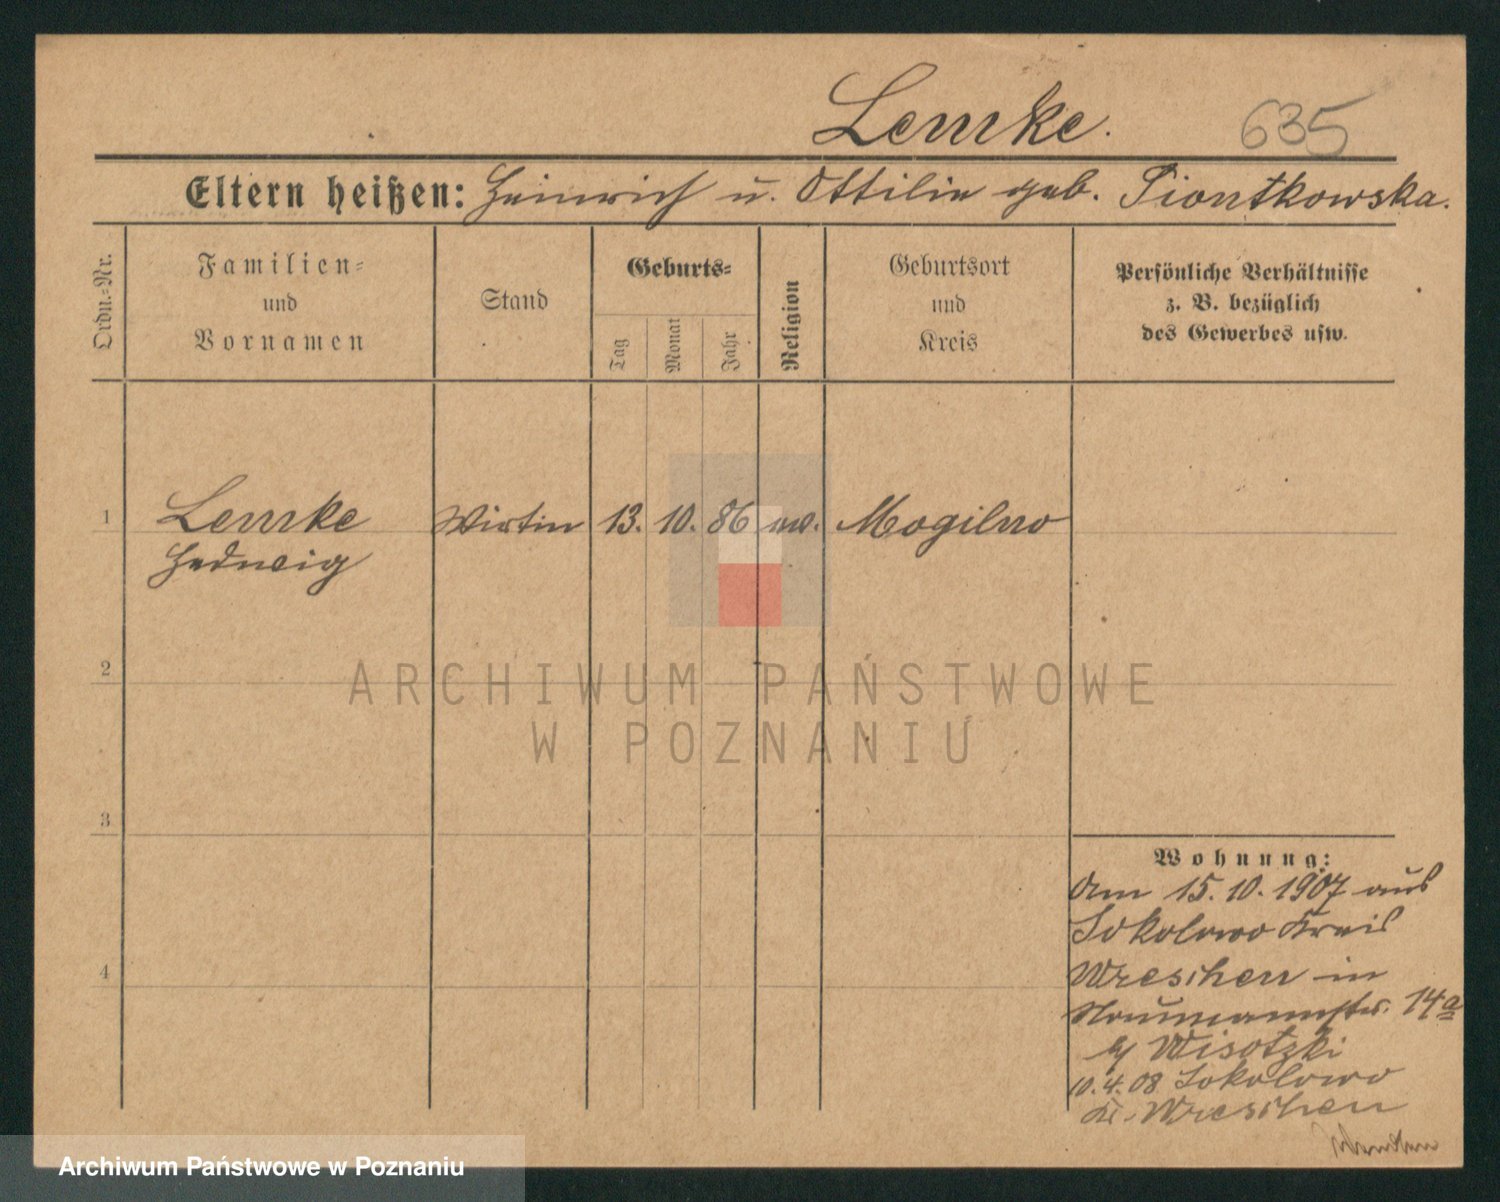 Lemke.
635
Eltern heißen: Heinrich u. Ottilie geb. Piontkowska.
Ordn.-Nr.
Familien-
und
Vornamen
Stand
Geburts-
Tag
Monat
Jahr
Religion
Geburtsort
und
Kreis
Persönliche Verhältnisse
z. B. bezüglich
des Gewerbes usw.
1 Lemke Wirtin 13. 10. 86 ev. Mogilno
Hedwig
2
ARCHIWUM PAŃSTWOWE
W POZNANIU
3
Wohnung:
Am 15.10.1907 aus
Sokolowo Kreis
4
Wreschen in
Naumannstr. 14a
b/ Wisotzki
10.4.08 Sokolowo
Kr. Wreschen
Archiwum Państwowe w Poznaniu